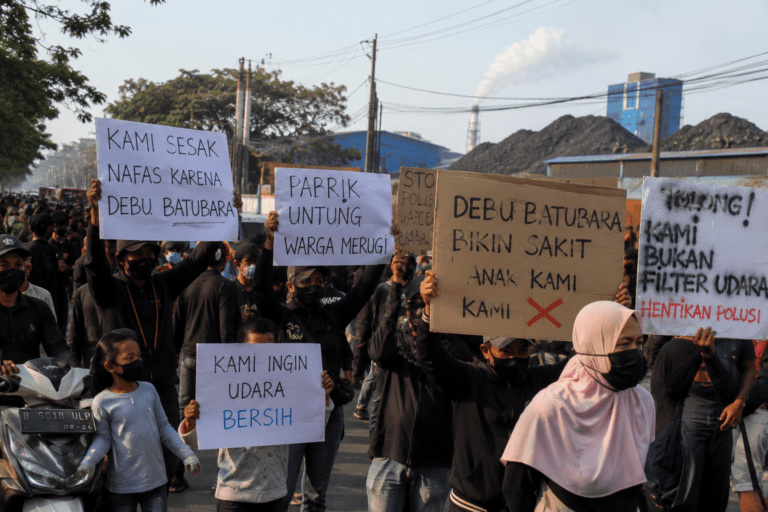 KAMI SESAK
NAFAS KARENA
DEBU BATUBARA
PABRIK
UNTUNG
WARGA MERUGI
STO
DEBU BATUBARA
BIKIN SAKIT
ANAK KAMI
KAMI
TOLONG!
KAMI
BUKAN
FILTER UDARA
HENTIKAN POLUSI
KAMI INGIN
UDARA
BERSIH
B 6018 ULP
08·26